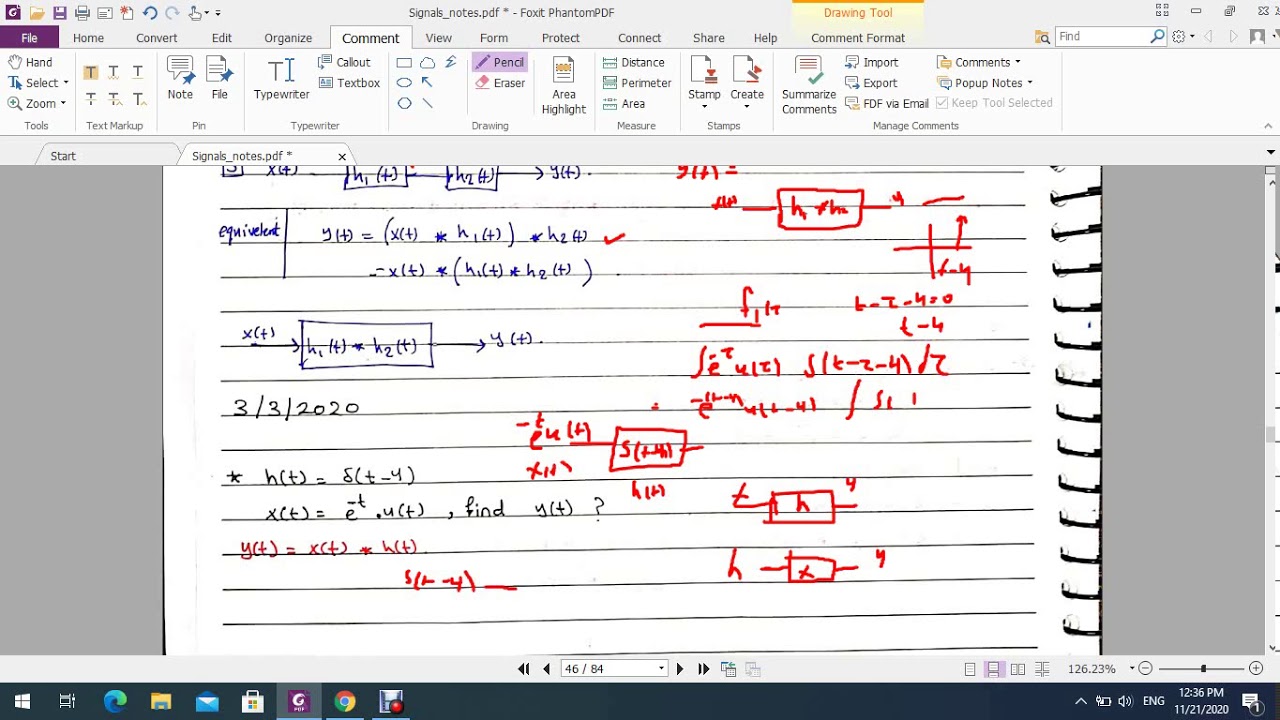 Signals_notes.pdf * - Foxit PhantomPDF
Drawing Tool
File Home Convert Edit Organize Comment View Form Protect Connect Share Help Comment Format Find
Hand
Select
Zoom
Tools
T T T
T T T
Text Markup
Note File
Pin
Typewriter
Callout
Textbox
Typewriter
Pencil
Eraser
Drawing
Area Highlight
Distance
Perimeter
Area
Measure
Stamp Create
Stamps
Summarize Comments
Import
Export
FDF via Email
Comments
Popup Notes
Keep Tool Selected
Manage Comments
Start Signals_notes.pdf *
x(t) h₁(t) h₂(t) y(t).
y(t) =
h₁ * h₂ y
equivalent
y(t) = (x(t) * h₁(t)) * h₂(t) ✓
= x(t) * (h₁(t) * h₂(t))
t-4
t-τ-4=0
t-4
x(t) h₁(t) * h₂(t) y(t).
∫e^-τ u(τ) δ(t-τ-4) dτ
= e^-(t-4) u(t-4) ∫ δ(
3/3/2020
e^-t u(t) δ(t-4)
x(t) h(t)
* h(t) = δ(t-4)
x(t) = e^-t . u(t) , find y(t) ?
h y
y(t) = x(t) * h(t)
h x y
δ(t-4)
46 / 84
126.23%
ENG
12:36 PM
11/21/2020